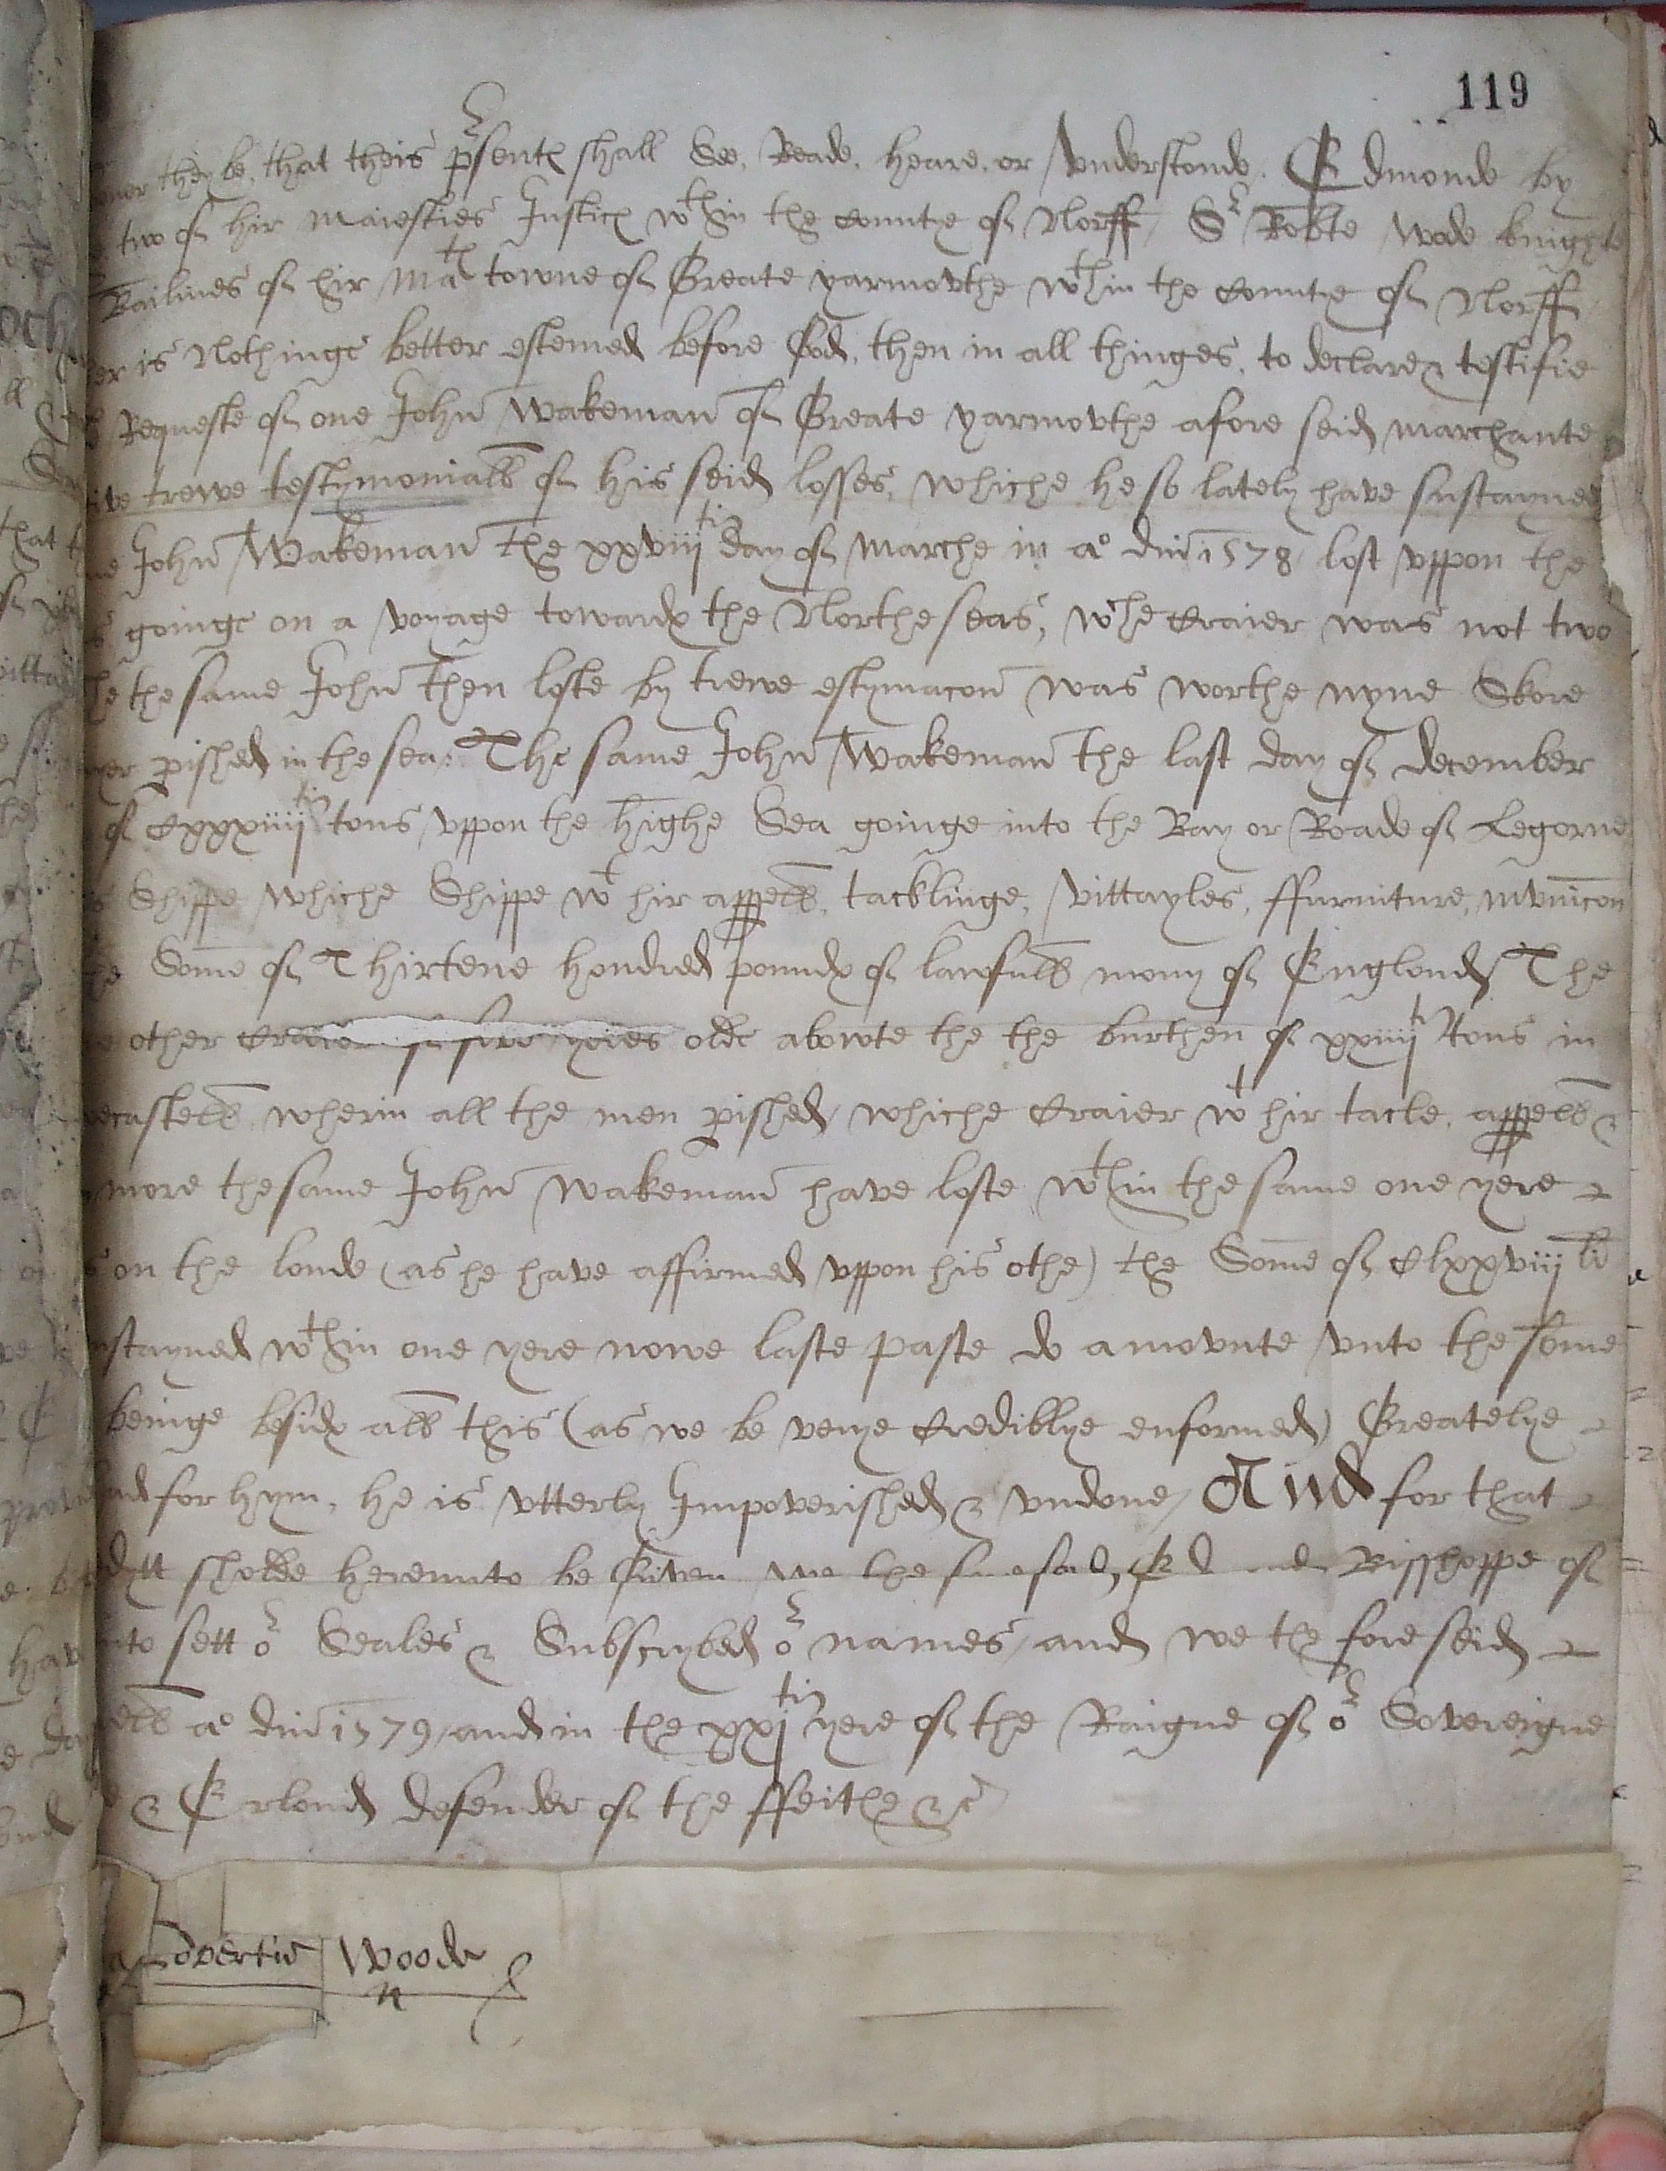 119
they be, that theis psent shall See, Reade, heare, or vnderstonde, Edmonde by
two of hir Maiesties Justic wthin the Countye of Norff, Sr Robte Wode knighte
Bailives of hir Mats towne of Greate yarmovthe wthin the Countye of Norff
er is Nothinge better estemed before God, then in all thinges, to declare & testifie
Requeste of one John Wakeman of Greate yarmovthe afore seid marchante
ive trewe testymoniall of his seid losses, whiche he so lately have sustayned
John Wakeman the xxviijti day of Marche in ao dni 1578 lost vppon the
goinge on a voyage toward the Northe seas, whe Craier was not two
the same John then loste by trewe estymacon was worthe nyne Skore
pished in the sea. The same John Wakeman the last day of december
of Cxxxiiijtie tons vppon the highe Sea goinge into the Bay or Roade of Legorne
Shippe whiche Shippe wt hir appell, tacklinge, vittayles, ffurniture, mvnicon
Some of Thirtene hondred pound of lawfull mony of Englond The
other Craier of five yeres olde abowte the the burthen of xxiiijti tons in
castell wherin all the men pished, whiche Craier wt hir tacle, appell &
more the same John Wakeman have loste wthin the same one yere
on the londe (as he have affirmed vppon his othe) the Some of Clxxviij li
stayned wthin one yere nowe laste paste do amovnte vnto the some
beinge besid all this (as we be verye Crediblye enformed) Greatelye
for hym, he is vtterly Impoverished & vndone, And for that
sholde herevnto be Given we the Bisshoppe of
nto sett or Seales & Subscrybed or names, and we the fore seid
ao dni 1579, and in the xxjtie yere of the Raigne of or Sovereigne
& Erlond defender of the ffeithe &c
Woode